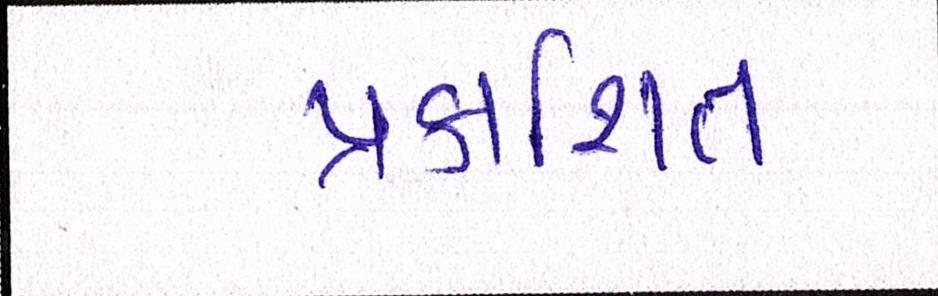 પ્રકાશિત